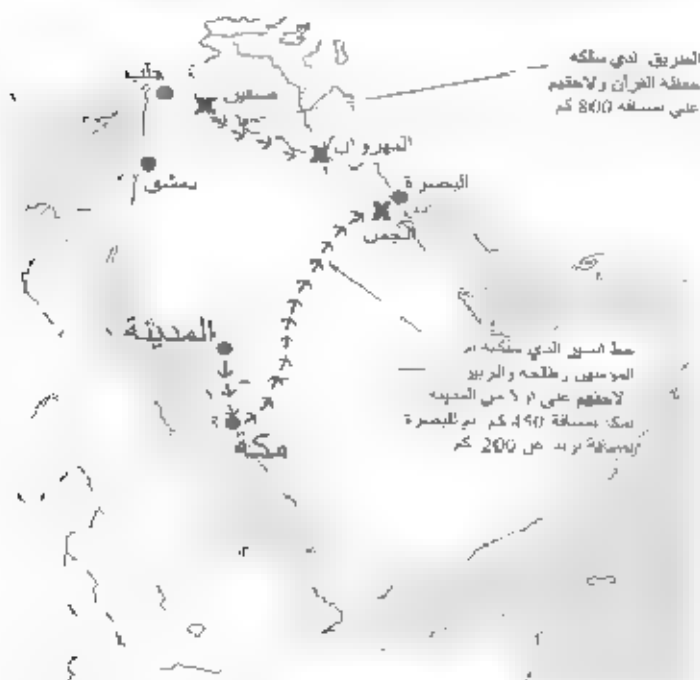 حلب
صفين
الطريق الذي سلكه
حفظة القرآن ولاحقهم
على مسافة 800 كم
النهروان
دمشق
البصرة
الجمل
المدينة
خط السير الذي سلكته ام
المؤمنين وطلحة والزبير
لاحقهم علي من المدينة
مكة بمسافة 450 كم ثم للبصرة
بمسافة تزيد عن 200 كم
مكة